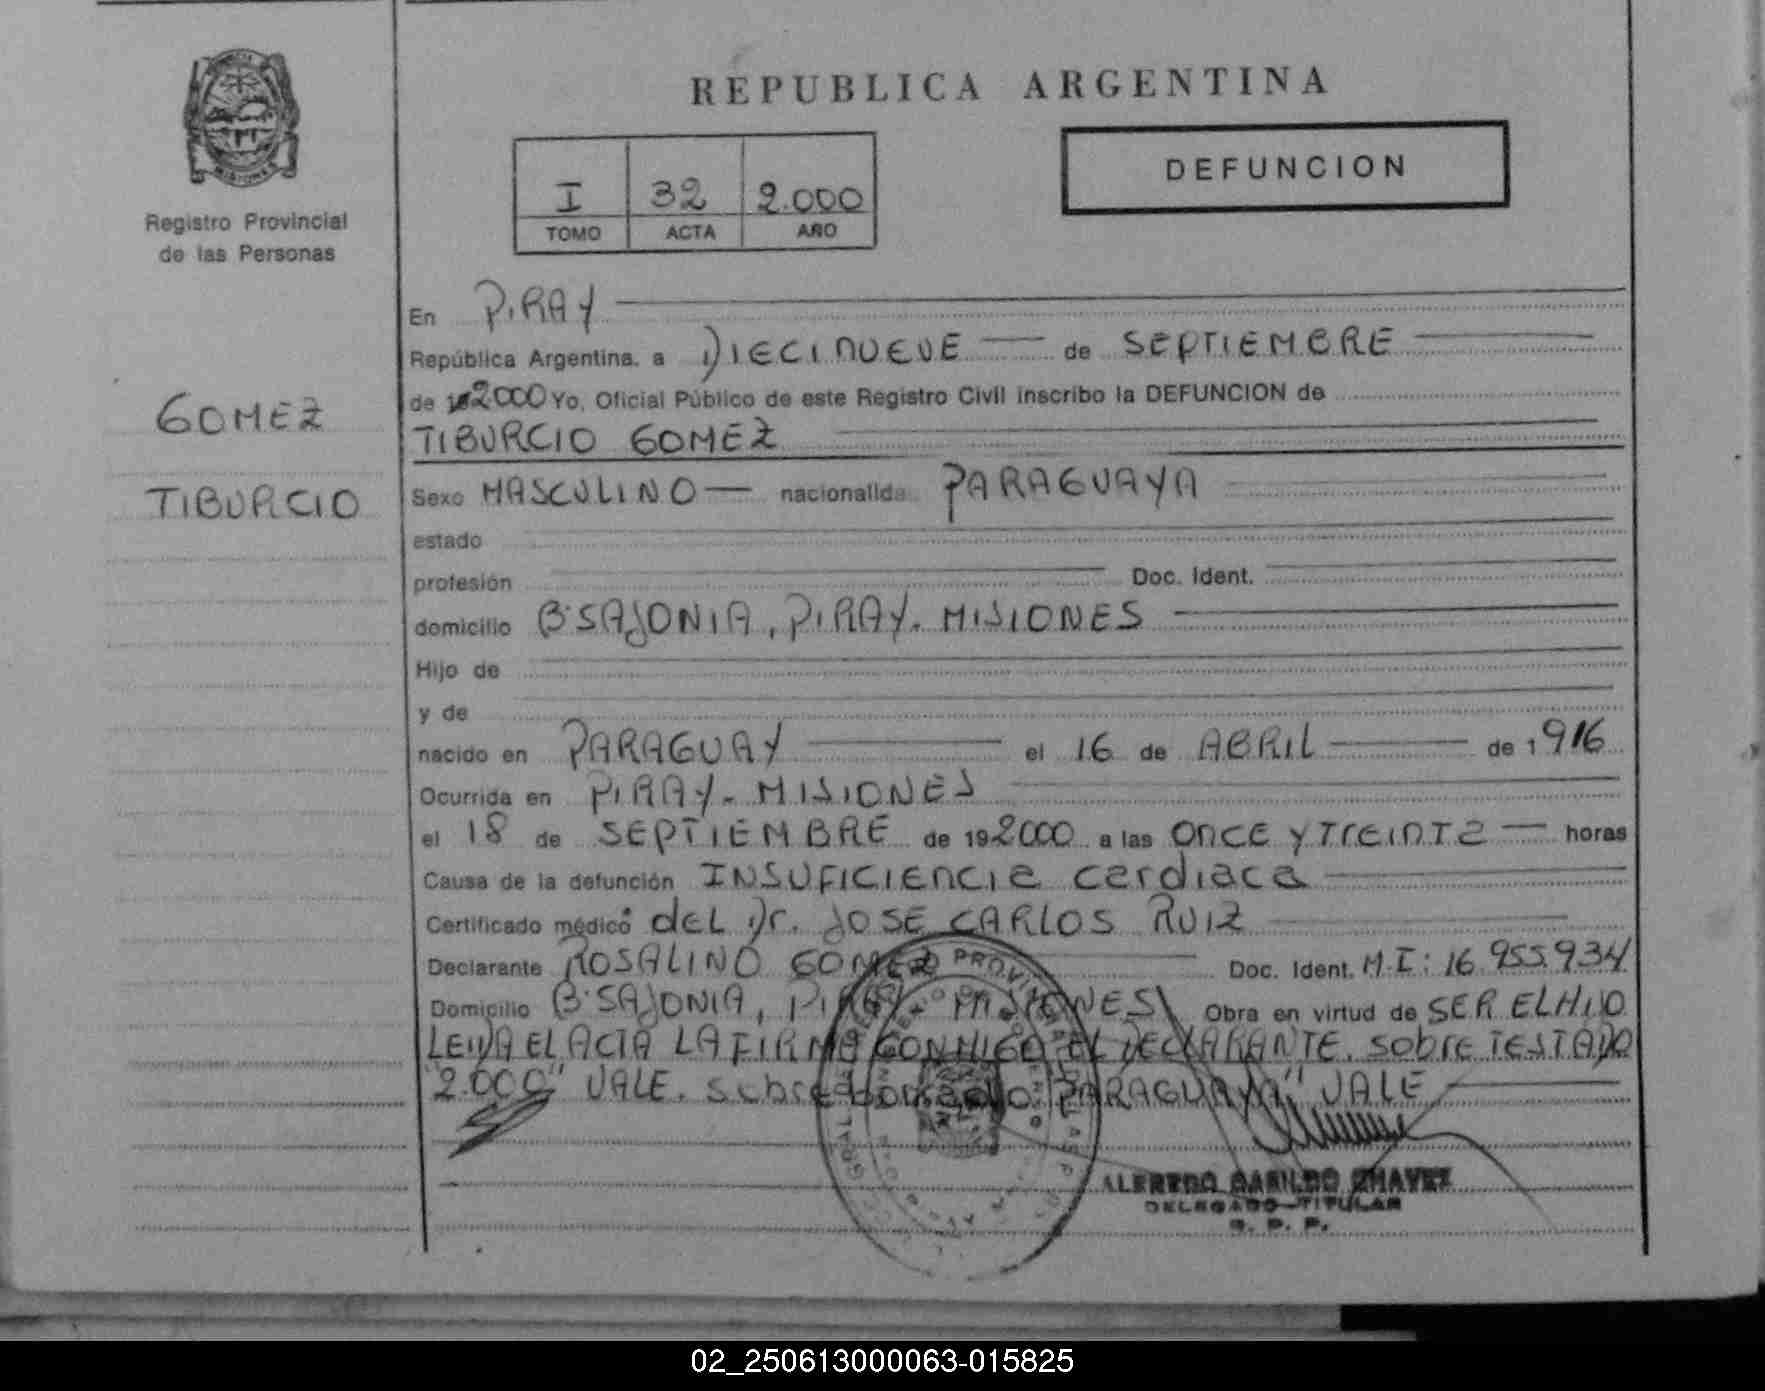 REPUBLICA ARGENTINA
DEFUNCION
I 32 2.000
TOMO ACTA AÑO
Registro Provincial
de las Personas
GOMEZ
TIBURCIO
En PIRAY
República Argentina. a DIECINUEVE de SEPTIEMBRE
de 2000 Yo, Oficial Público de este Registro Civil inscribo la DEFUNCION de
TIBURCIO GOMEZ
Sexo MASCULINO nacionalida PARAGUAYA
estado
profesión Doc. Ident.
domicilio Bº SAJONIA, PIRAY. MISIONES
Hijo de
y de
nacido en PARAGUAY el 16 de ABRIL de 1916
Ocurrida en PIRAY - MISIONES
el 18 de SEPTIEMBRE de 192000 a las ONCE Y TREINTA horas
Causa de la defunción INSUFICIENCIA cardiaca
Certificado médico del Dr. JOSE CARLOS RUIZ
Declarante ROSALINO GOMEZ Doc. Ident. M.I: 16.955.934
Domicilio Bº SAJONIA, PIRAY MISIONES Obra en virtud de SER EL HIJO
LEIDA EL ACTA LA FIRMA CONMIGO EL DECLARANTE. sobre TESTADO
"2.000" VALE. sobre borrado PARAGUAYA" VALE
ALFREDO CHAVEZ
DELEGADO TITULAR
R. P. P.
02_250613000063-015825